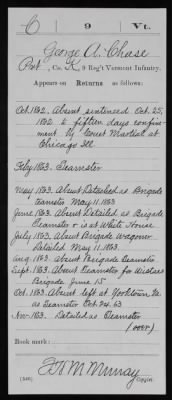 C 9 Vt.
George A. Chase
Pvt., Co. K, 9 Reg't Vermont Infantry.
Appears on
Returns as follows:
Oct. 1862. Absent sentenced Oct. 25,
1862 to fifteen days confine-
ment by Court Martial at
Chicago Ill
Feby 1863. Teamster
May 1863. Absent Detached as Brigade
teamster May 11. 1863
June 1863. Absent Detailed as Brigade
Teamster & is at White House
July 1863. Absent Brigade wagoner
Detailed May 11. 1863.
Aug. 1863. Absent Brigade Teamster
Sept. 1863. Absent Teamster for
Brigade June 15
Oct. 1863. Absent left at Yorktown Va
as Teamster Oct 24. 63
Nov. 1863. Detailed as Teamster
(over)
Book mark:
M Murray
(546) Copyist.